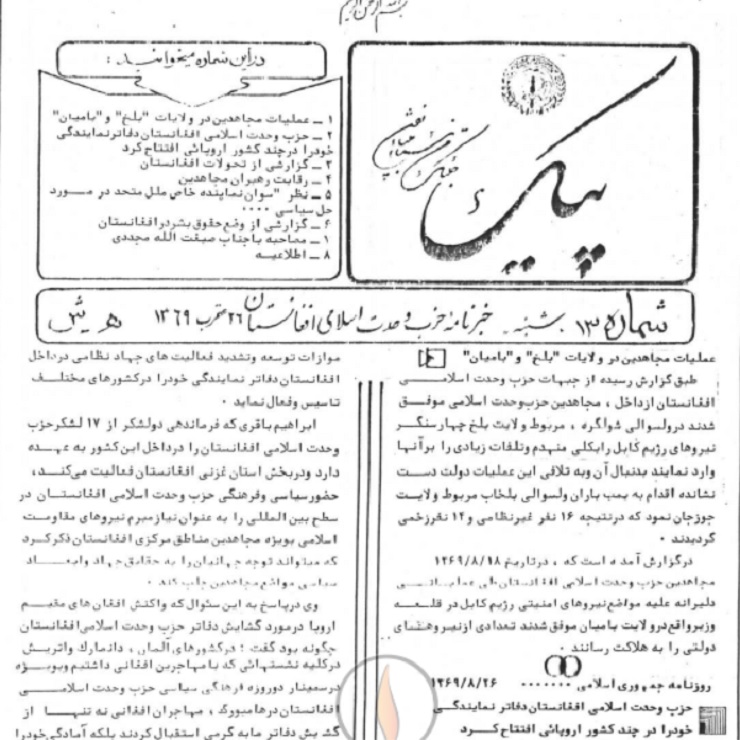 بسم الله الرحمن الرحیم
پیک
در این شماره میخوانید :
۱ ـ عملیات مجاهدین در ولایات "بلخ" و "بامیان"
۲ ـ حزب وحدت اسلامی افغانستان دفاتر نمایندگی
خود را در چند کشور اروپائی افتتاح کرد
۳ ـ گزارشی از تحولات افغانستان
۴ ـ رقابت رهبران مجاهدین
۵ ـ نظر "سوان نماینده خاص ملل متحد در مورد
حل سیاسی ۰۰۰۰
۶ ـ گزارشی از وضع حقوق بشر در افغانستان
۱ ـ مصاحبه با جناب صبقت الله مجددی
۸ ـ اطلاعیه
شماره ۱۳ شنبه خبرنامه حزب وحدت اسلامی افغانستان ۲۶ عقرب ۱۳۶۹
عملیات مجاهدین در ولایات "بلخ" و "بامیان"
طبق گزارش رسیده از جبهات حزب وحدت اسلامی
افغانستان از داخل ، مجاهدین حزب وحدت اسلامی موفق
شدند در ولسوالی شولگره ، مربوط ولایت بلخ چهار سنگر
نیروهای رژیم کابل را بکلی منهدم و تلفات زیادی را بر آنها
وارد نمایند بدنبال آن و به تلافی این عملیات دولت دست
نشانده اقدام به بمب باران ولسوالی بلخاب مربوط ولایت
جوزجان نمود که در نتیجه ۱۶ نفر غیرنظامی و ۱۴ نفر زخمی
گردیدند ۰
در گزارش آمده است که ، در تاریخ ۱۳۶۹/۸/۱۸
مجاهدین حزب وحدت اسلامی افغانستان طی عملیاتی
دلیرانه علیه مواضع نیروهای امنیتی رژیم کابل در قلعه
وزیر واقع در ولایت بامیان موفق شدند تعدادی از نیروهای
دولتی را به هلاکت رسانند ۰
روزنامه جمهوری اسلامی ۰۰۰۰۰۰۰ ۱۳۶۹/۸/۲۶
حزب وحدت اسلامی افغانستان دفاتر نمایندگی
خود را در چند کشور اروپائی افتتاح کرد
موازات توسعه و تشدید فعالیت های جهاد نظامی در داخل
افغانستان دفاتر نمایندگی خود را در کشورهای مختلف
تاسیس و فعال نماید ۰
ابراهیم باقری که فرماندهی دو لشکر از ۱۷ لشکر حزب
وحدت اسلامی افغانستان را در داخل این کشور به عهده
دارد و در بخش استان غزنی افغانستان فعالیت می‌کند ،
حضور سیاسی و فرهنگی حزب وحدت اسلامی افغانستان در
سطح بین المللی را به عنوان نیاز مبرم نیروهای مقاومت
اسلامی بویژه مجاهدین مناطق مرکزی افغانستان ذکر کرد
که میتواند توجه جهانیان را به حقایق جهاد و ابعاد
سیاسی مواضع مجاهدین جلب کند ۰
وی در پاسخ به این سئوال که واکنش افغان های مقیم
اروپا در مورد گشایش دفاتر حزب وحدت اسلامی افغانستان
چگونه بود گفت ؛ در کشورهای آلمان ، دانمارک و اتریش
در کلیه نشستهائی که با مهاجرین افغانی داشتیم و بویژه
در سمینار دو روزه فرهنگی سیاسی حزب وحدت اسلامی
افغانستان در هامبورگ ، مهاجران افغانی نه تنها از
گشایش دفاتر ما به گرمی استقبال کردند بلکه آمادگی خود را